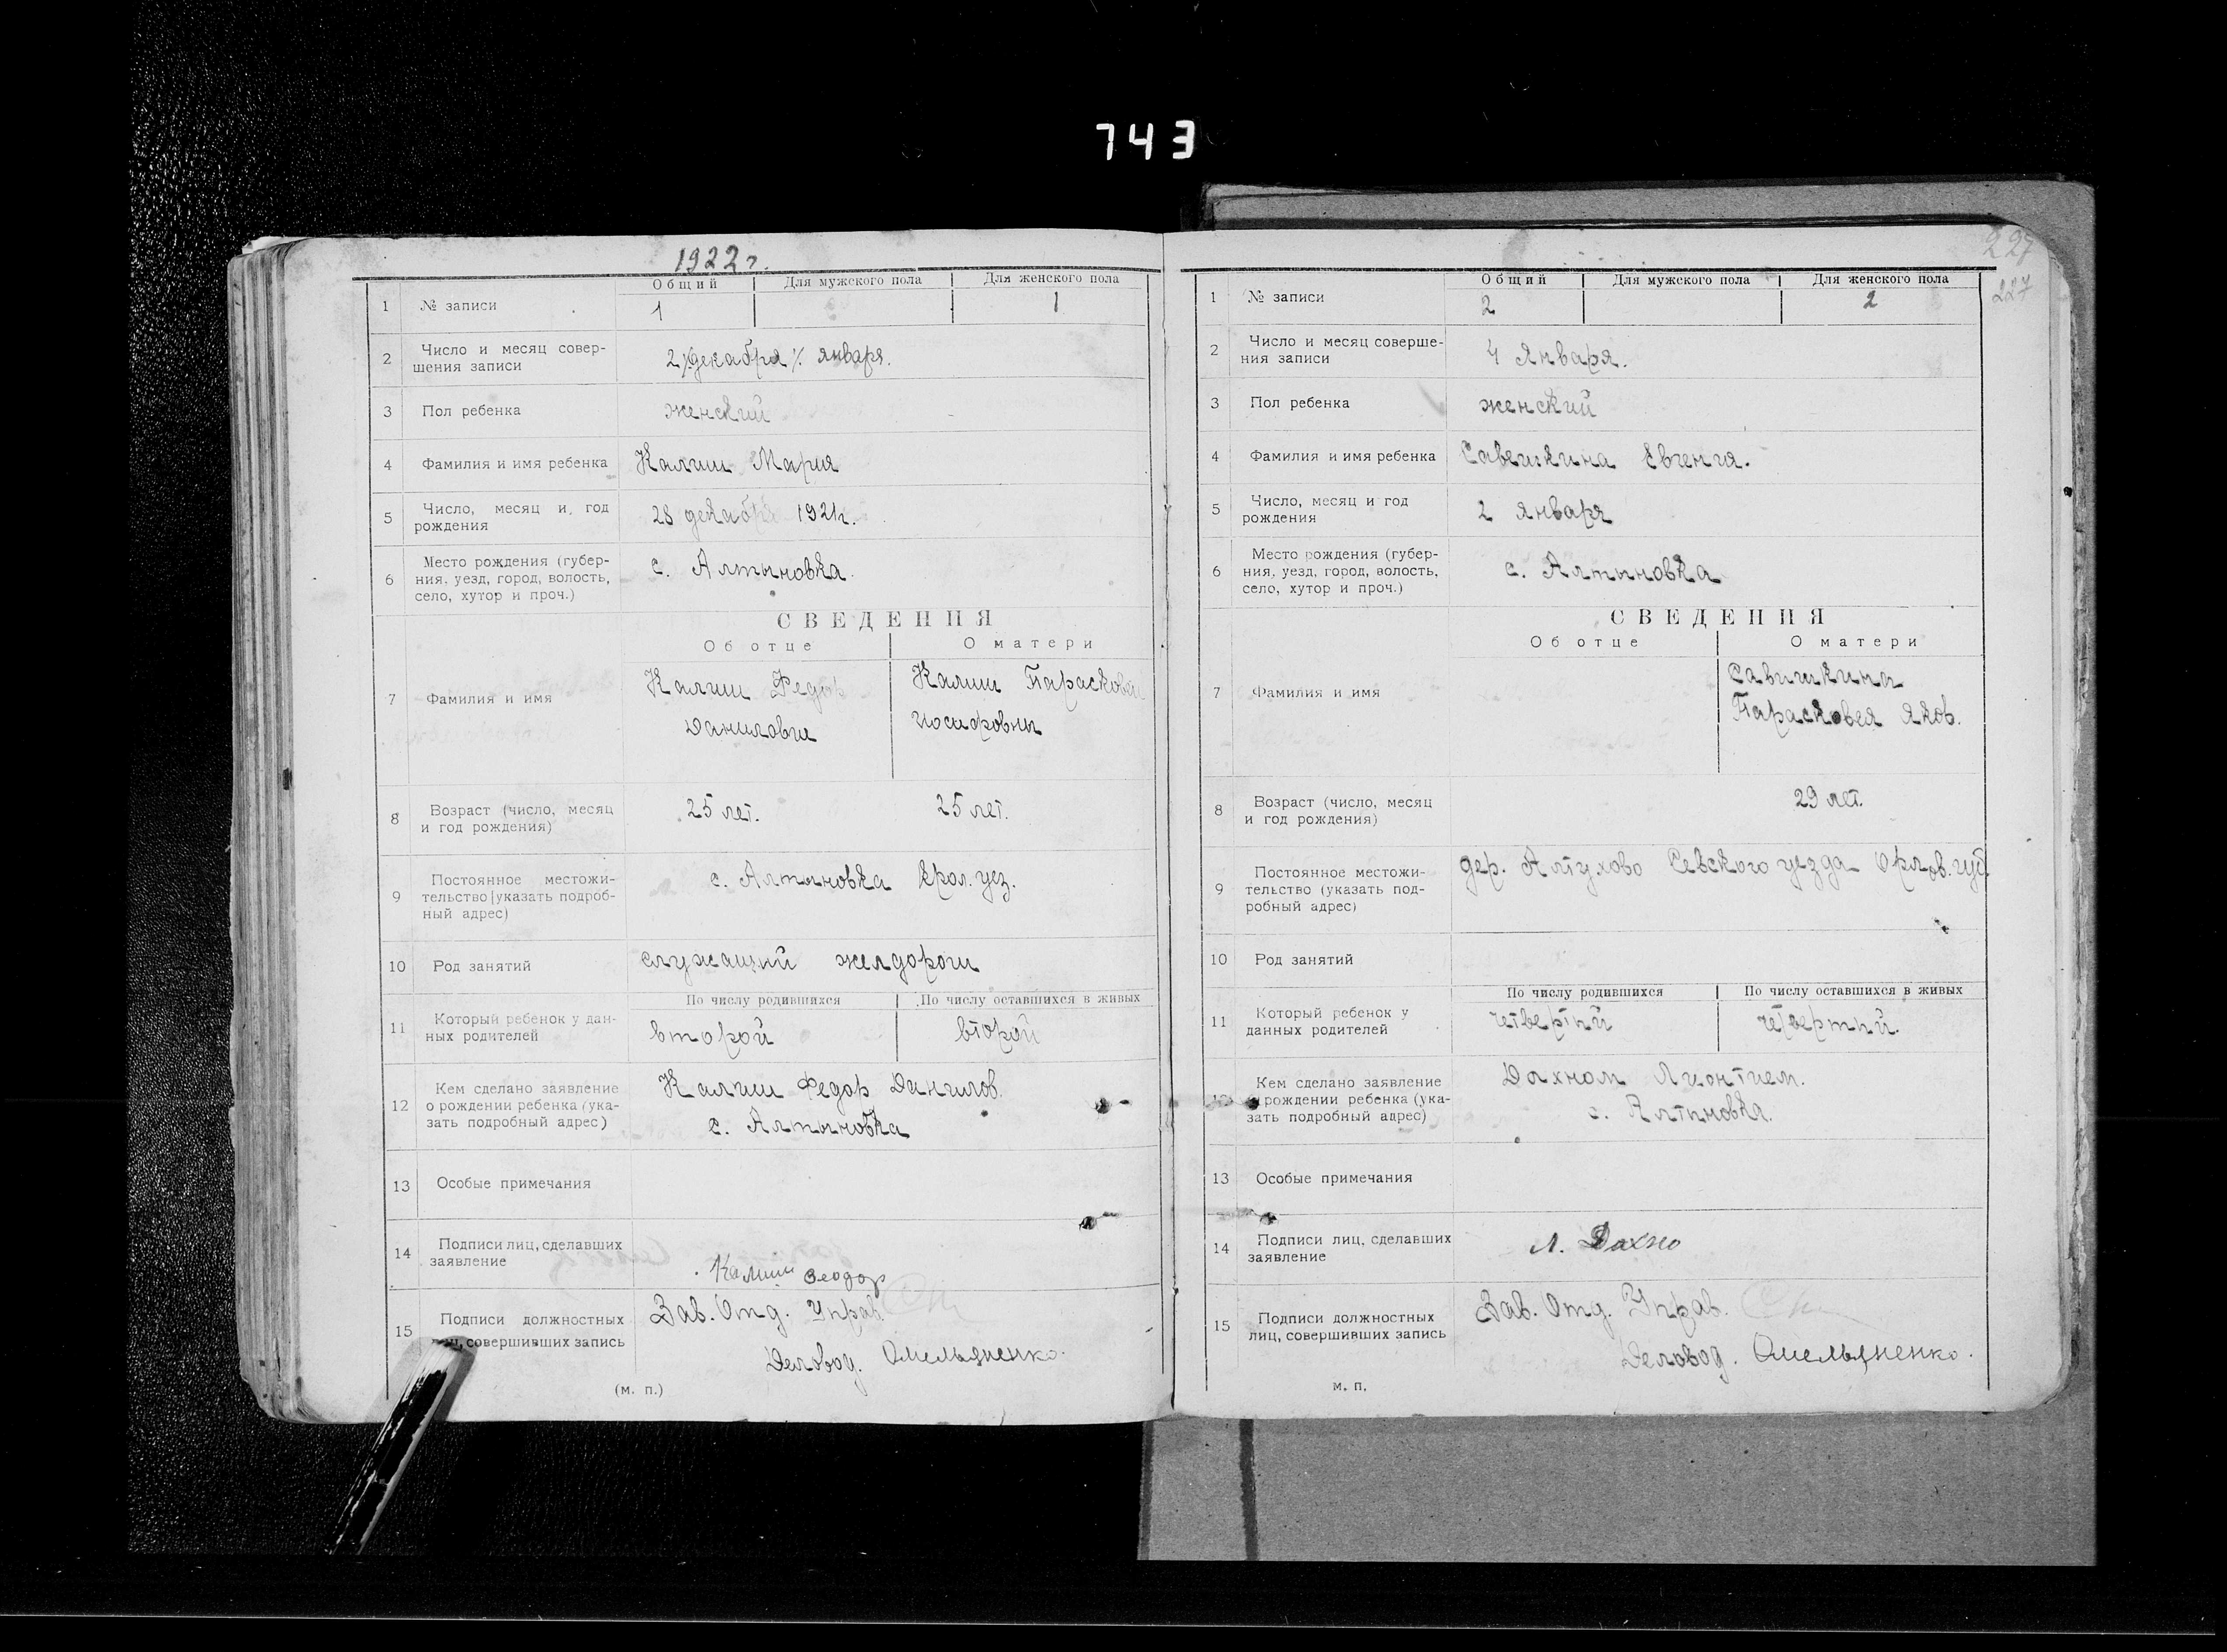 743
1922 г.
Общий Для мужского пола Для женского пола
1 № записи 1 1
2 Число и месяц совер-
шения записи декабря % января.
3 Пол ребенка женский
4 Фамилия и имя ребенка Калиш Мария
5 Число, месяц и год
рождения 28 декабря 1921 г.
6 Место рождения (губер-
ния, уезд, город, волость,
село, хутор и проч.) с. Алтыновка.
СВЕДЕНИЯ
Об отце О матери
7 Фамилия и имя Калиш Федор Калиш Парасковеи
Данилович Иосифовны
8 Возраст (число, месяц
и год рождения) 25 лет. 25 лет.
9 Постоянное местожи-
тельство (указать подроб-
ный адрес) с. Алтыновка Крол. уез.
10 Род занятий служащий желдороги
По числу родившихся По числу оставшихся в живых
11 Который ребенок у дан-
ных родителей второй второй
12 Кем сделано заявление
о рождении ребенка (ука-
зать подробный адрес) Калиш Федор Данилов.
с. Алтыновка
13 Особые примечания
14 Подписи лиц, сделавших
заявление Калиш Феодор
15 Подписи должностных
лиц, совершивших запись Зав. Отд. Управ.
Деловод. Омельяненко.
(м. п.)
227
227
Общий Для мужского пола Для женского пола
1 № записи 2 2
2 Число и месяц соверше-
ния записи 4 Января.
3 Пол ребенка женский
4 Фамилия и имя ребенка Савешкина Евгения.
5 Число, месяц и год
рождения 2 января
6 Место рождения (губер-
ния, уезд, город, волость,
село, хутор и проч.) с. Алтыновка
СВЕДЕНИЯ
Об отце О матери
7 Фамилия и имя Савишкина
Парасковея Яков.
8 Возраст (число, месяц
и год рождения) 29 лет.
9 Постоянное местожи-
тельство (указать под-
робный адрес) дер. Алтухово Севского уезда Орлов. губ.
10 Род занятий
По числу родившихся По числу оставшихся в живых
11 Который ребенок у
данных родителей четвертый четвертый.
12 Кем сделано заявление
о рождении ребенка (ука-
зать подробный адрес) Дахном Лионтием.
с. Алтыновка.
13 Особые примечания
14 Подписи лиц, сделавших
заявление Л. Дахно
15 Подписи должностных
лиц, совершивших запись Зав. Отд. Управ.
Деловод. Омельяненко.
м. п.